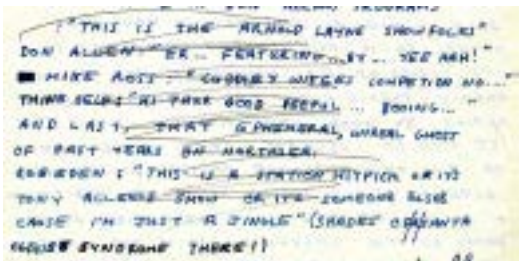 : "THIS IS THE ARNOLD LAYNE SHOW FOLKS"
DON ALLEN "ER.. FEATURING... BY... YEE HAH!"
MIKE ROSS "COMPETION NO..."
GOOD ... BOOING... "
AND LAST, THAT EPHEMERAL, UNREAL GHOST
OF PAST YEARS ON NORTHSEA.
ROB EDEN : "THIS IS A STATION HITPICK OR ITS
TONY ALLENS SHOW OR ITS SOMEONE ELSES
CAUSE I'M JUST A JINGLE" (SHADES OF SANTA
CLAUSE SYNDROME THERE!)